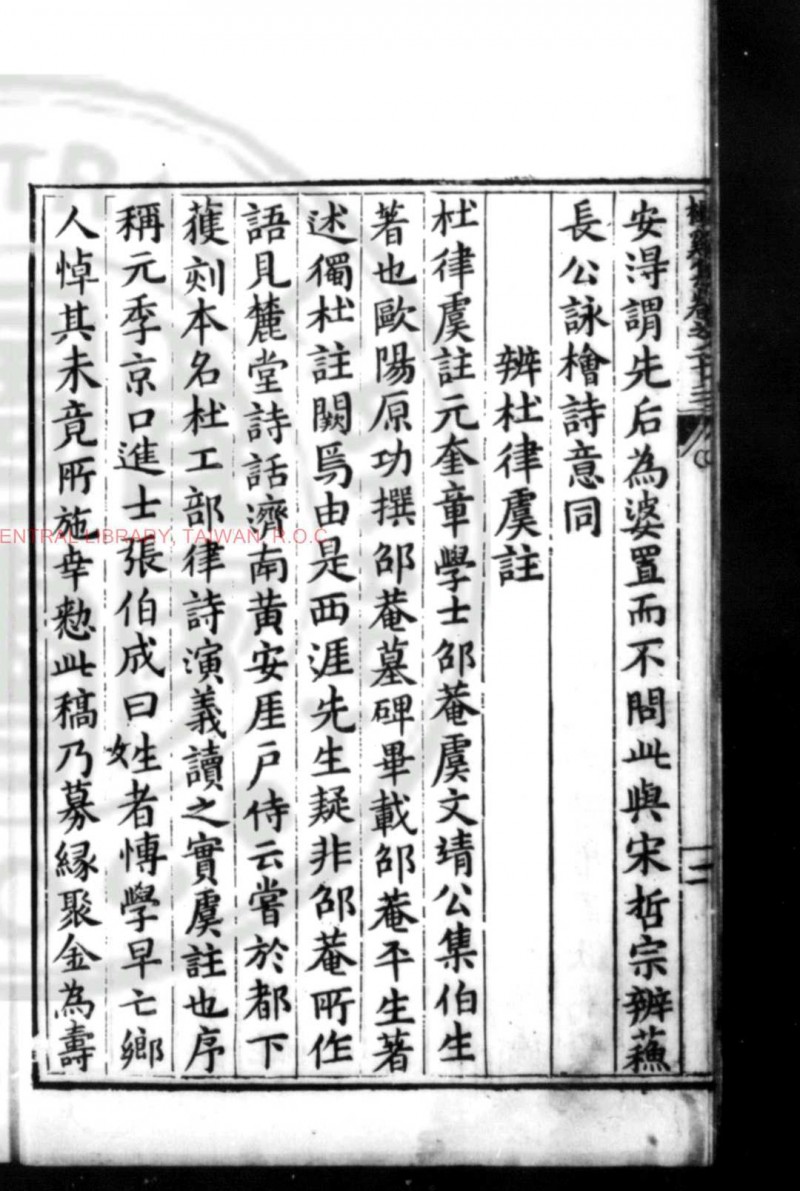 安淂謂先后為婆置而不問此與宋哲宗辨蘓
長公詠檜詩意同
辨杜律虞註
杜律虞註元奎章學士邵菴虞文靖公集伯生
著也歐陽原功撰邵菴墓碑畢載邵菴平生著
述獨杜註闕焉由是西涯先生疑非邵菴所作
語見麓堂詩話濟南黃安厓戶侍云嘗於都下
獲刻本名杜工部律詩演義讀之實虞註也序
稱元季京口進士張伯成曰姓者愽學早亡鄉
人悼其未竟所施幸懃此稿乃募緣聚金為壽
卷之二十三
二
ENTRAL LIBRARY, TAIWAN, R.O.C